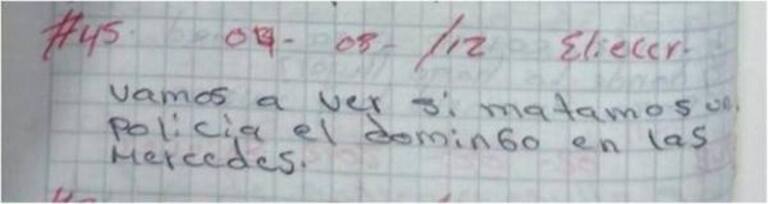 #45 04- 03- /12 Eliecer.
vamos a ver si matamos un
Policia el domingo en las
Mercedes.